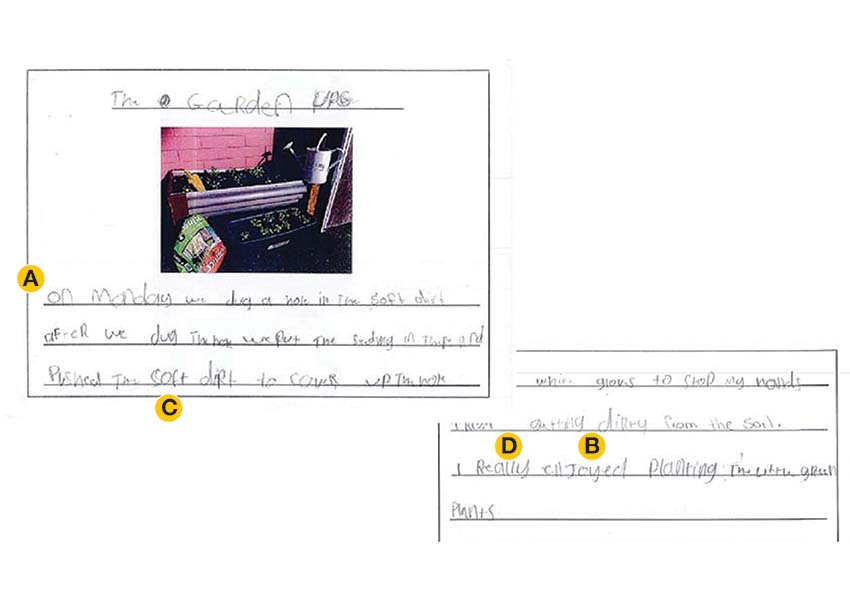 The GARdEN
A
on Monday we dug a hole in The soft dirt
after we dug The hole we put The in There and
Pushed The soft dirt to cover up The hole
C
white gloves to stop my hands
getting dirty from the soil.
D B
I Really enJoyed Planting The little green
Plants